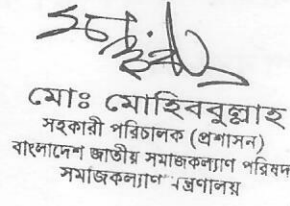 মোঃ মোহিববুল্লাহ
সহকারী পরিচালক (প্রশাসন)
বাংলাদেশ জাতীয় সমাজকল্যাণ পরিষদ
সমাজকল্যাণ